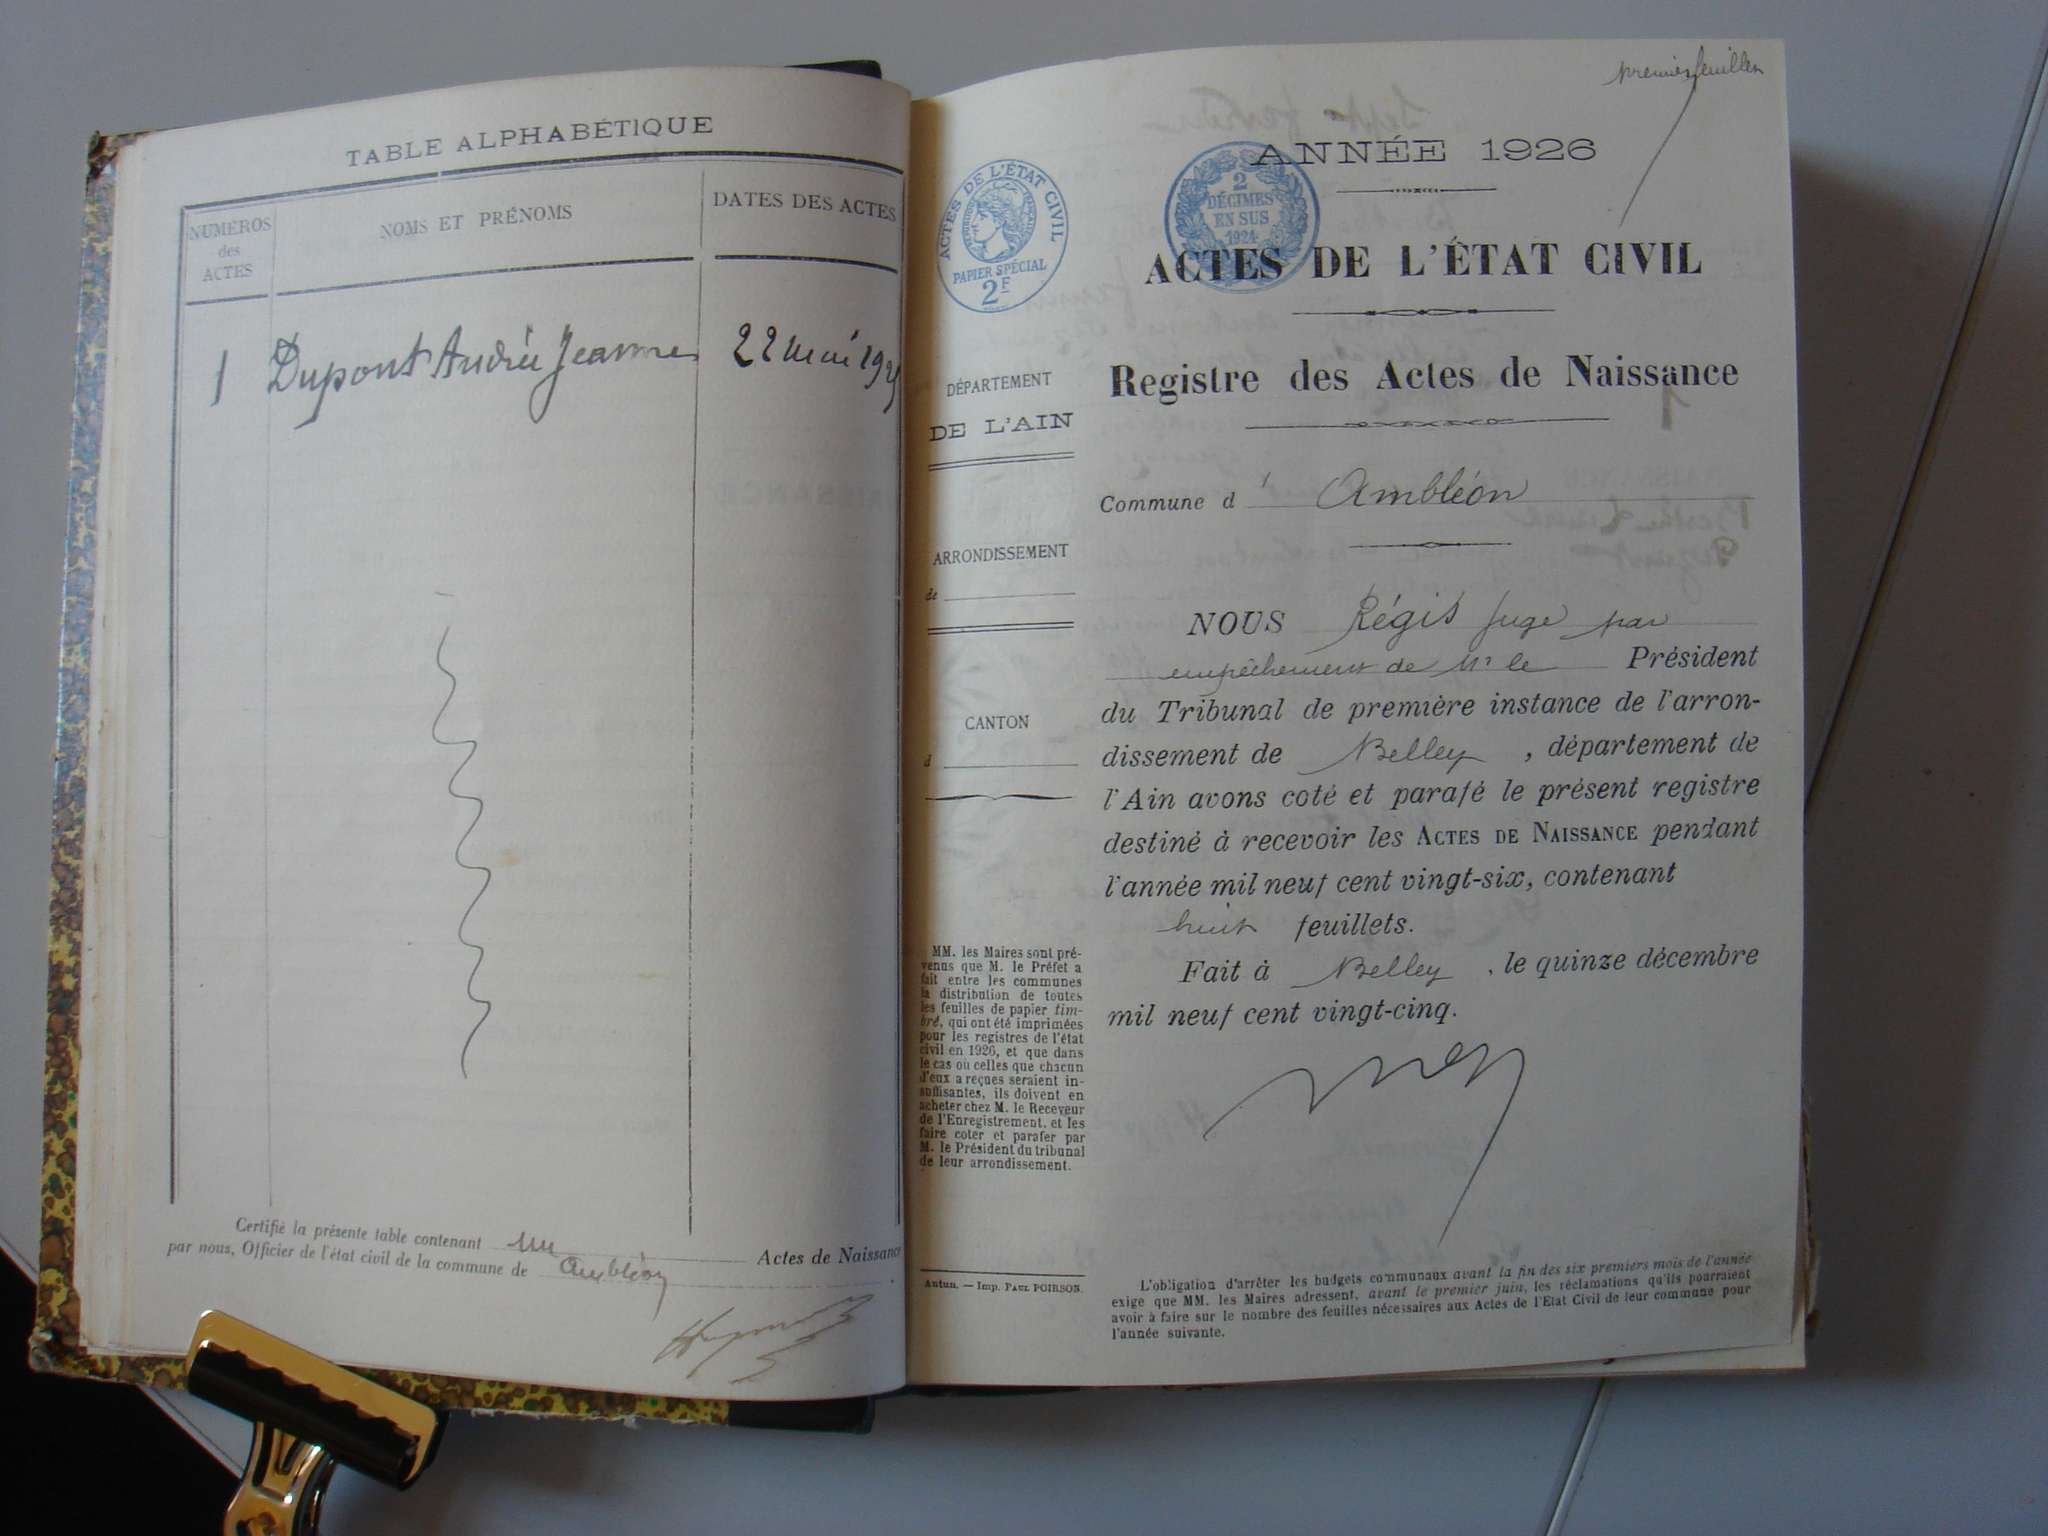 TABLE ALPHABÉTIQUE
NUMEROS
des
ACTES
NOMS ET PRÉNOMS
DATES DES ACTES
1 Dupont Andrée Jeanne 22 mai 1925
Certifié la présente table contenant un Actes de Naissance
par nous, Officier de l'état civil de la commune de Ambléon
premier feuillet
ANNÉE 1926
ACTES DE L'ÉTAT CIVIL
PAPIER SPÉCIAL
2F
2
DÉCIMES
EN SUS
1924
ACTES DE L'ÉTAT CIVIL
Registre des Actes de Naissance
DÉPARTEMENT
DE L'AIN
ARRONDISSEMENT
de
CANTON
d
Commune d' Ambléon
NOUS Régis Juge par
empêchement de Mr le Président
du Tribunal de première instance de l'arron-
dissement de Belley, département de
l'Ain avons coté et parafé le présent registre
destiné à recevoir les ACTES DE NAISSANCE pendant
l'année mil neuf cent vingt-six, contenant
huit feuillets.
Fait à Belley, le quinze décembre
mil neuf cent vingt-cinq.
MM. les Maires sont pré-
venus que M. le Préfet a
fait entre les communes
la distribution de toutes
les feuilles de papier tim-
bré, qui ont été imprimées
pour les registres de l'état
civil en 1926, et que dans
le cas où celles que chacun
d'eux a reçues seraient in-
suffisantes, ils doivent en
acheter chez M. le Receveur
de l'Enregistrement, et les
faire coter et parafer par
M. le Président du tribunal
de leur arrondissement.
Autun. — Imp. PAUL POIRSON.
L'obligation d'arrêter les budgets communaux avant la fin des six premiers mois de l'année
exige que MM. les Maires adressent, avant le premier juin, les réclamations qu'ils pourraient
avoir à faire sur le nombre des feuilles nécessaires aux Actes de l'Etat Civil de leur commune pour
l'année suivante.